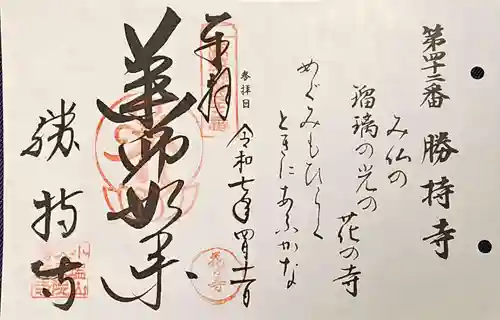 第四十二番 勝持寺
み仏の
瑠璃の光の
花の寺
めぐみもひらく
ときにあふかな
参拝日
令和七年四月十一日
奉拝
薬師如来
勝持寺
花の寺